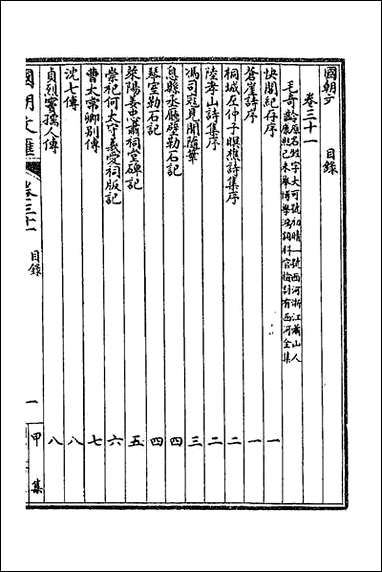 國朝文　目錄
卷三十一
毛奇齡原名甡字大可號初晴一號西河浙江蕭山人康熙己未舉博學鴻詞科官檢討有西河全集
快閣紀存序　一
蒼崖詩序　一
桐城左仲子暝樵詩集序　二
陸孝山詩集序　二
馮司寇見聞隨筆　三
息縣丞廳壁勒石記　四
琴室勒石記　四
萊陽姜忠肅祠堂碑記　五
崇祀何太守義愛祠版記　六
曹太常卿別傳　七
沈七傳　八
貞烈蜜孺人傳　八
國朝文匯　卷三十一　目錄　一　甲集